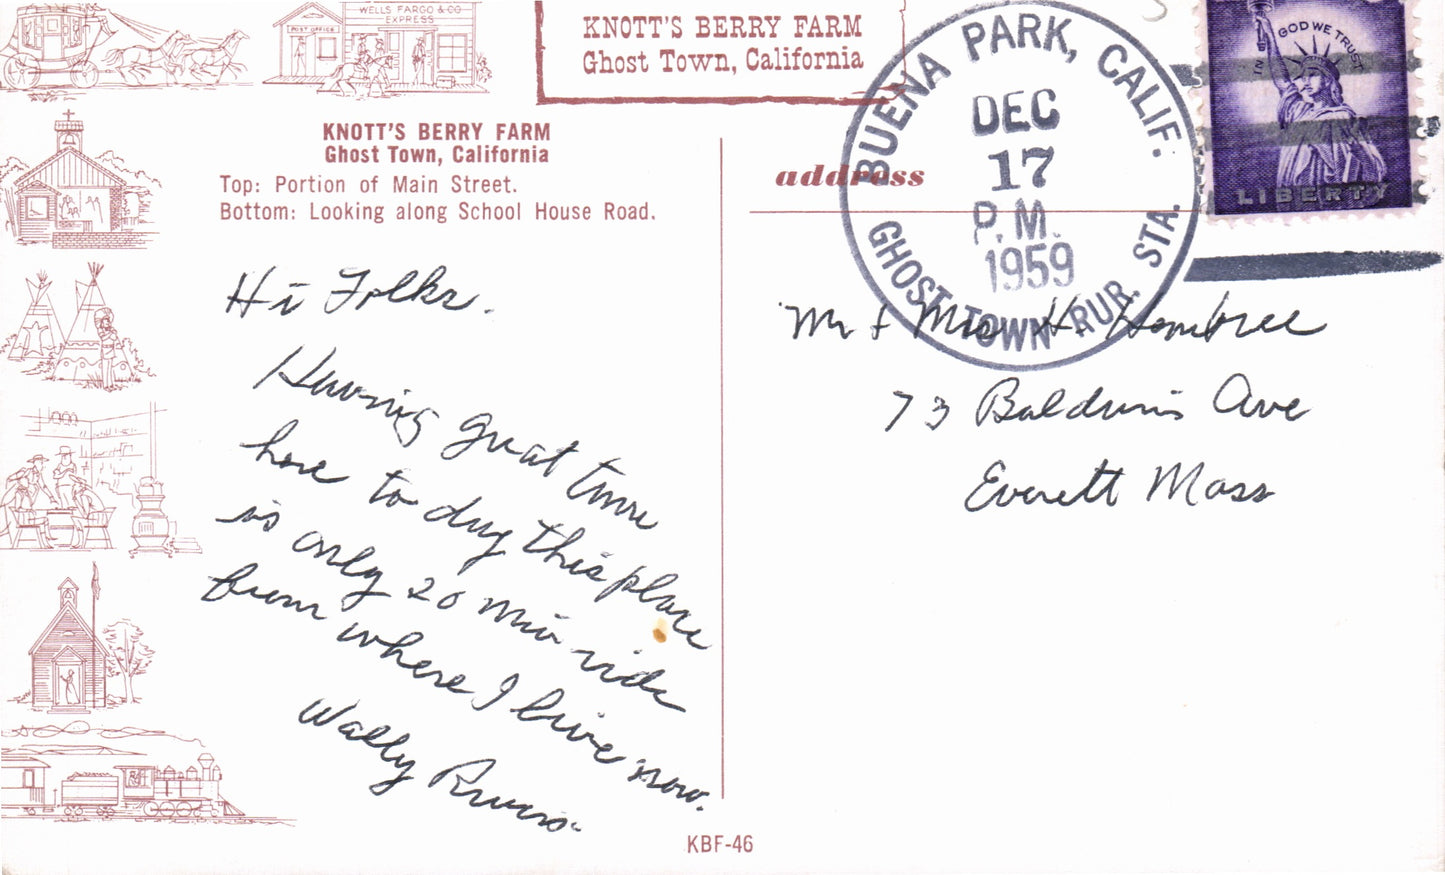 POST OFFICE
WELLS FARGO & CO
EXPRESS
KNOTT'S BERRY FARM
Ghost Town, California
KNOTT'S BERRY FARM
Ghost Town, California
Top: Portion of Main Street.
Bottom: Looking along School House Road.
Hi Folks.
Having great time
here to day this place
is only 20 min ride
from where I live now.
Wally
KBF-46
address
BUENA PARK, CALIF.
DEC
17
P.M.
1959
GHOST TOWN RUR. STA.
IN GOD WE TRUST
LIBERTY
Mr & Mrs H. Hombree
73 Baldwin Ave
Everett Mass